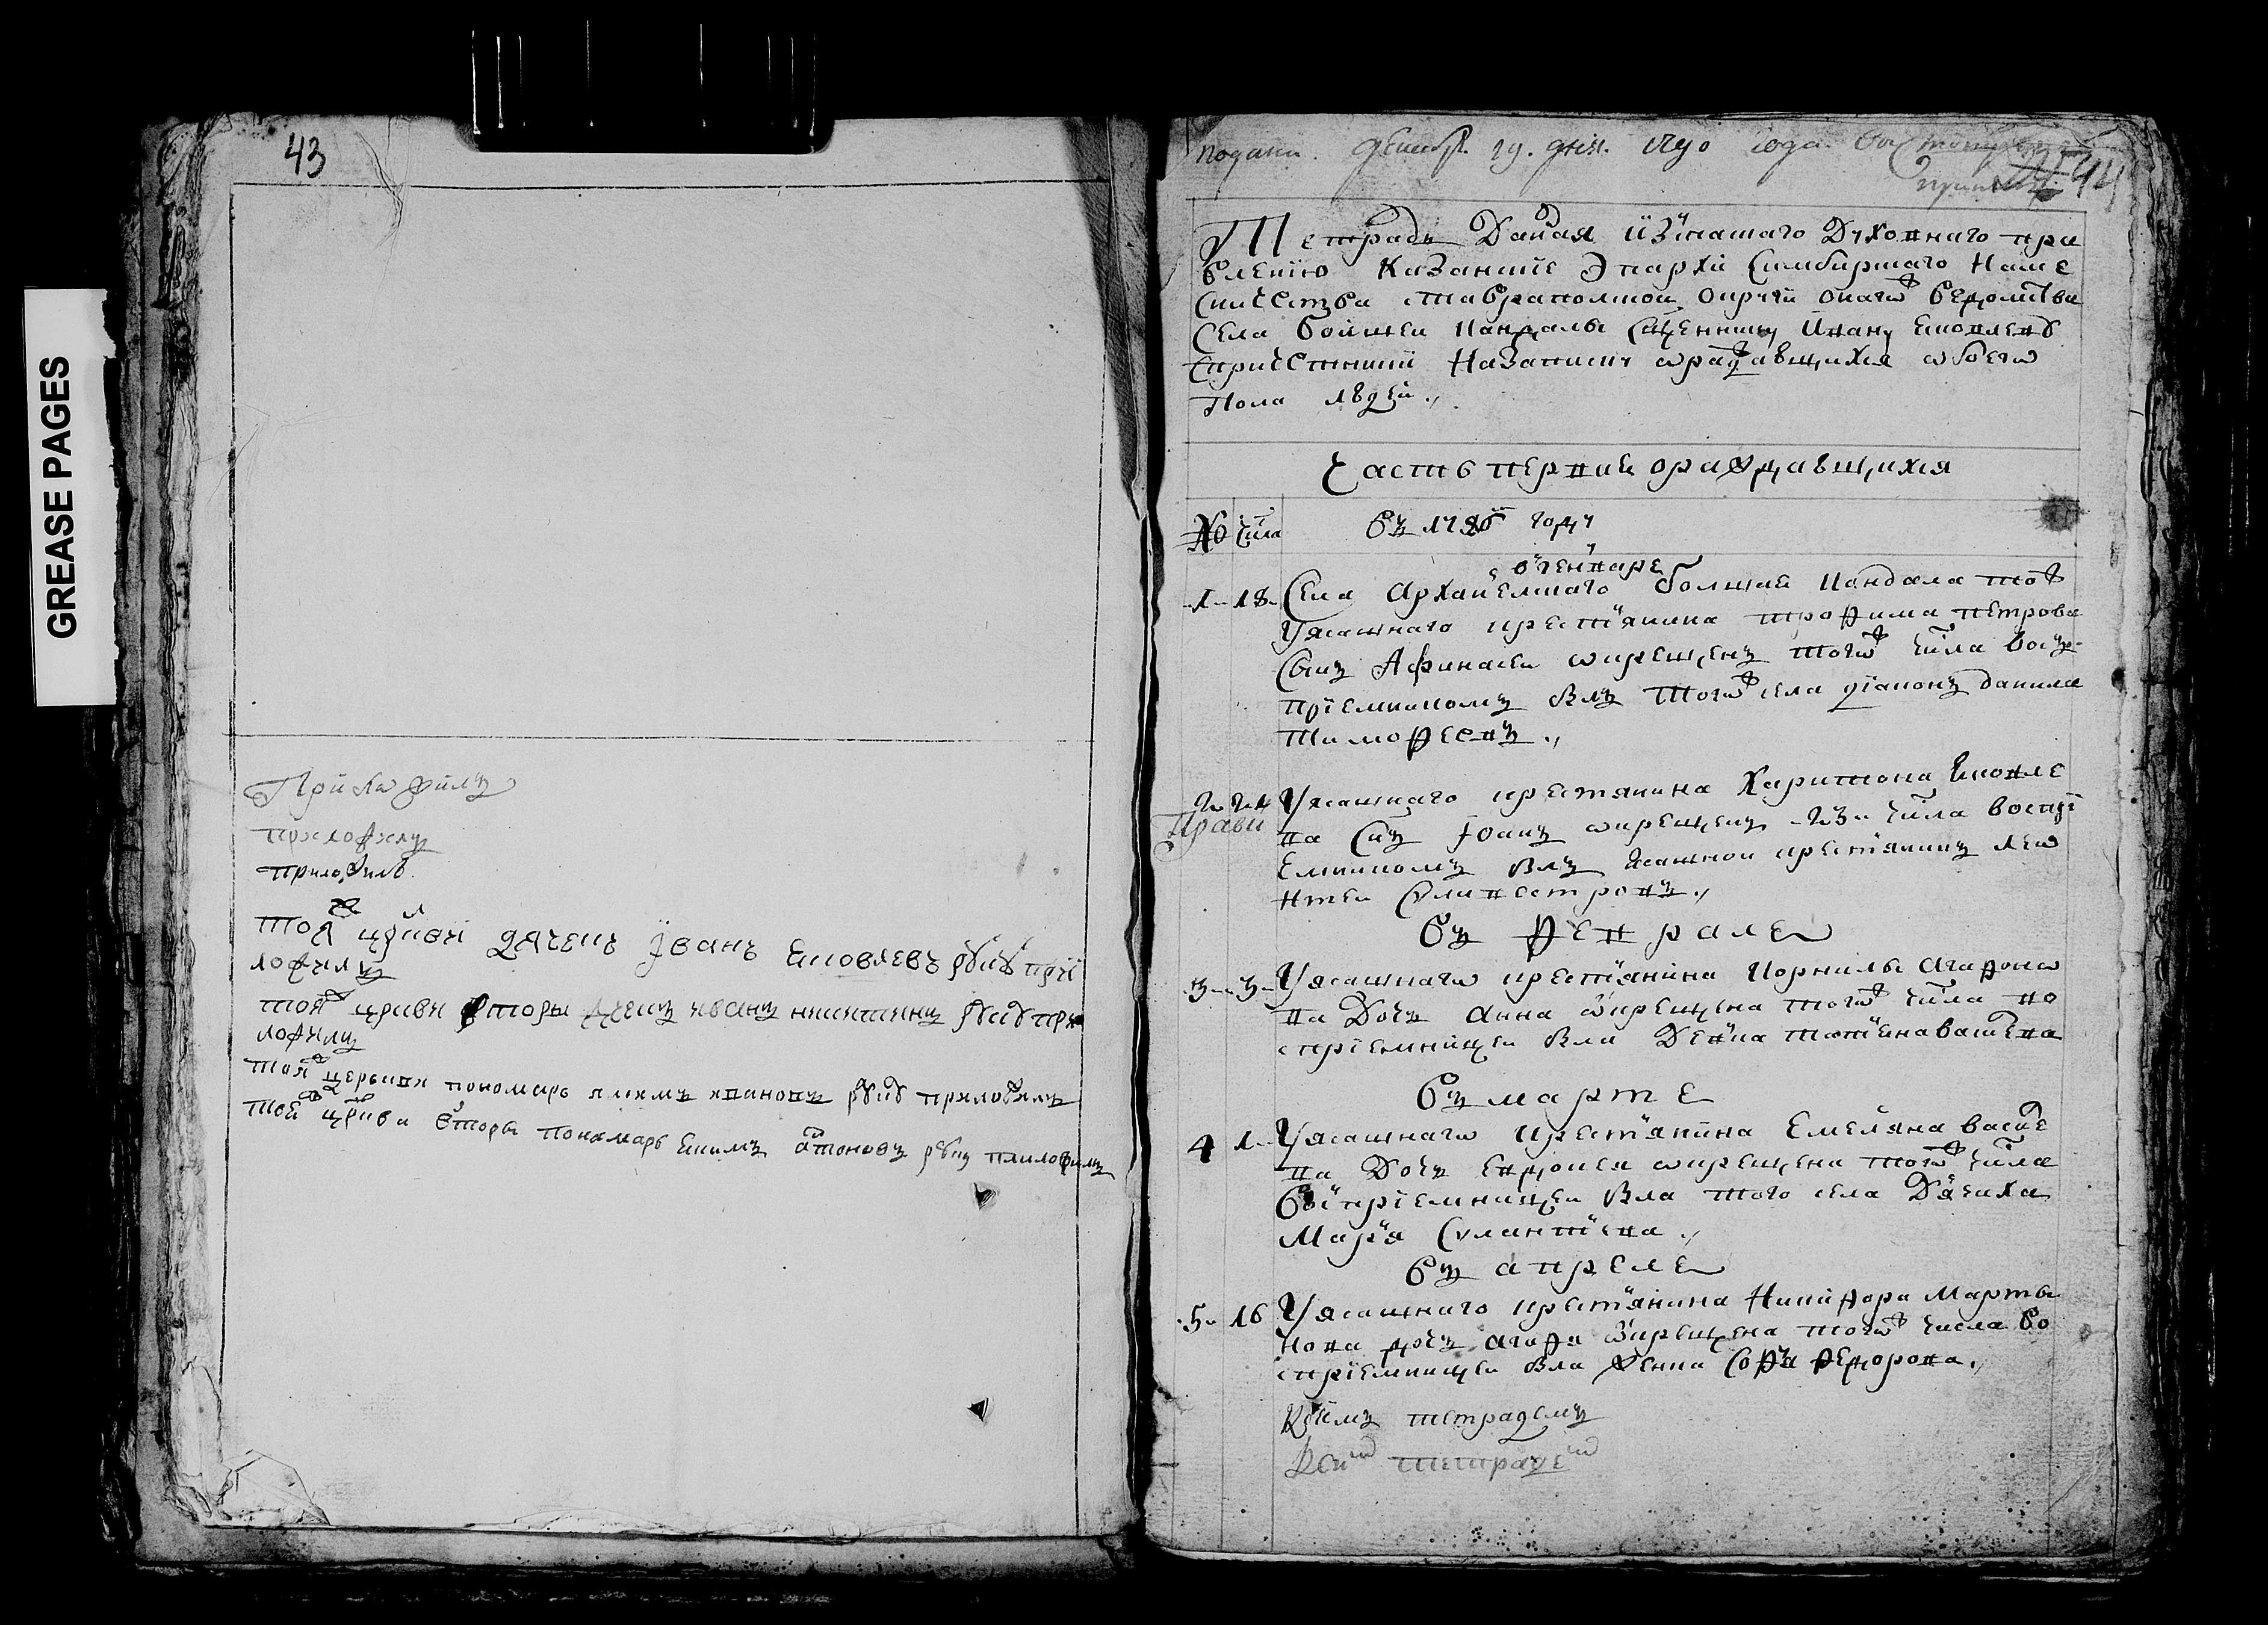 GREASE PAGES
43
Приложилъ
приложилъ
приложилъ
тоя црквї дячекъ Їванъ Яковлевъ руку при
ложилъ
тоя цркви вторы дчекъ иванъ никитинъ руку при
ложилъ
тоя церькви пономарь якимъ ивановъ руку приложилъ
тоей цркви вторы пономарь Екимъ антоновъ руку
подана декабр 29 дня 1790 года
44
Тетрадь Даная изъ нашаго Духовнаго пра
вленїю Казанские Эпархїи Симбирскаго Наме
сничества Ставрапольской округи онаго ведомства
Села большей Кандалы Сщеннику Ивану Яковлеву
Спричетники Назаписку о раждавщихся обоего
Пола людей
Часть первая ораждавщихся
№ Числа Въ 1790 году
в генваре
1 18 Села Архангелского большие Кандала тож
Уясашнаго крестьянина трофима петрова
Снъ Афанасеи окрещенъ тогож числа восъ
прїемникомъ былъ тогож села дїаконъ данила
Тимофеевъ
24 Уясашнаго крестянина Харитона Яковле
Прави
ва Снъ Іоанъ окрещенъ числа воспрї
емникомъ былъ ясашной крестянинъ лео
нтеи Силивестровъ
Въ Феврале
3 3 Уясашнаго крестьянина Корнилы агафоно
ва Дочь Анна окрещена тогож числа во
спрїемницеи была Девка татьяна васильева
Въ марте
4 1 Уясашнаго Крестьянина Емельяна василе
ва Дочь Евдокея окрещена тогож числа
Воспрїемницеи была того села Дячиха
Марья Силантьева
Въ апреле
5 16 Уясашнаго крестьянина Никифора Марты
нова дочь агафья окрещена тогож числа во
спрїемницеи была женка Софья Федорова
Ксимъ тетрадемъ
Ксим тетрадем